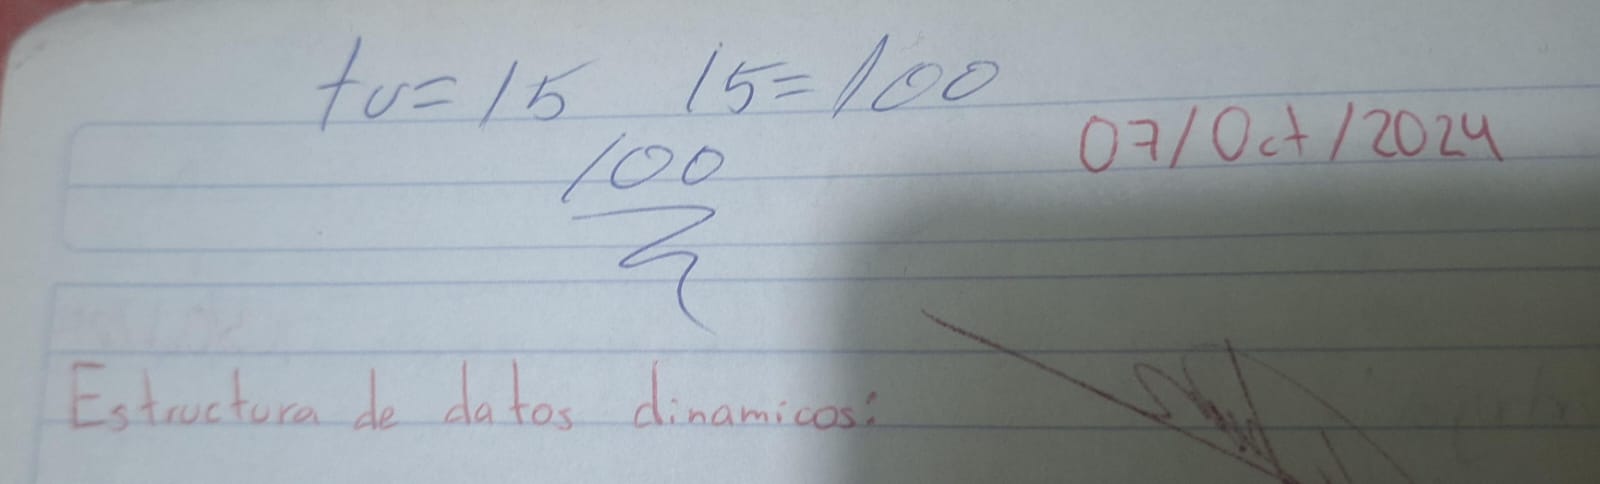 tv=15 15=100
100
07/Oct/2024
Estructura de datos dinamicos: